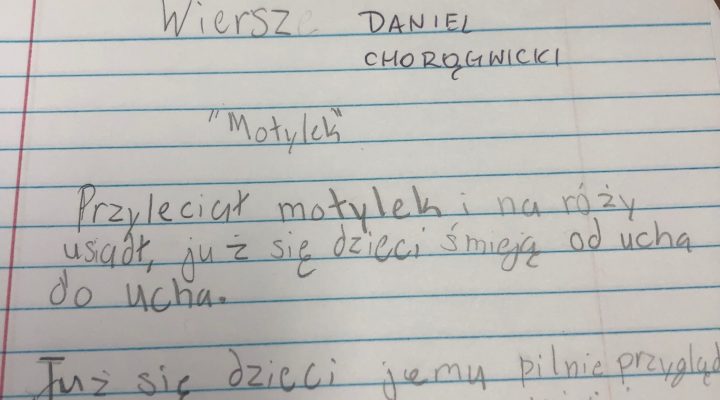 Wiersze DANIEL
CHORĄGWICKI
"Motylek"
Przyleciał motylek i na róży
usiadł, już się dzieci śmieją od ucha
do ucha.
Już się dzieci jemu pilnie przygląd